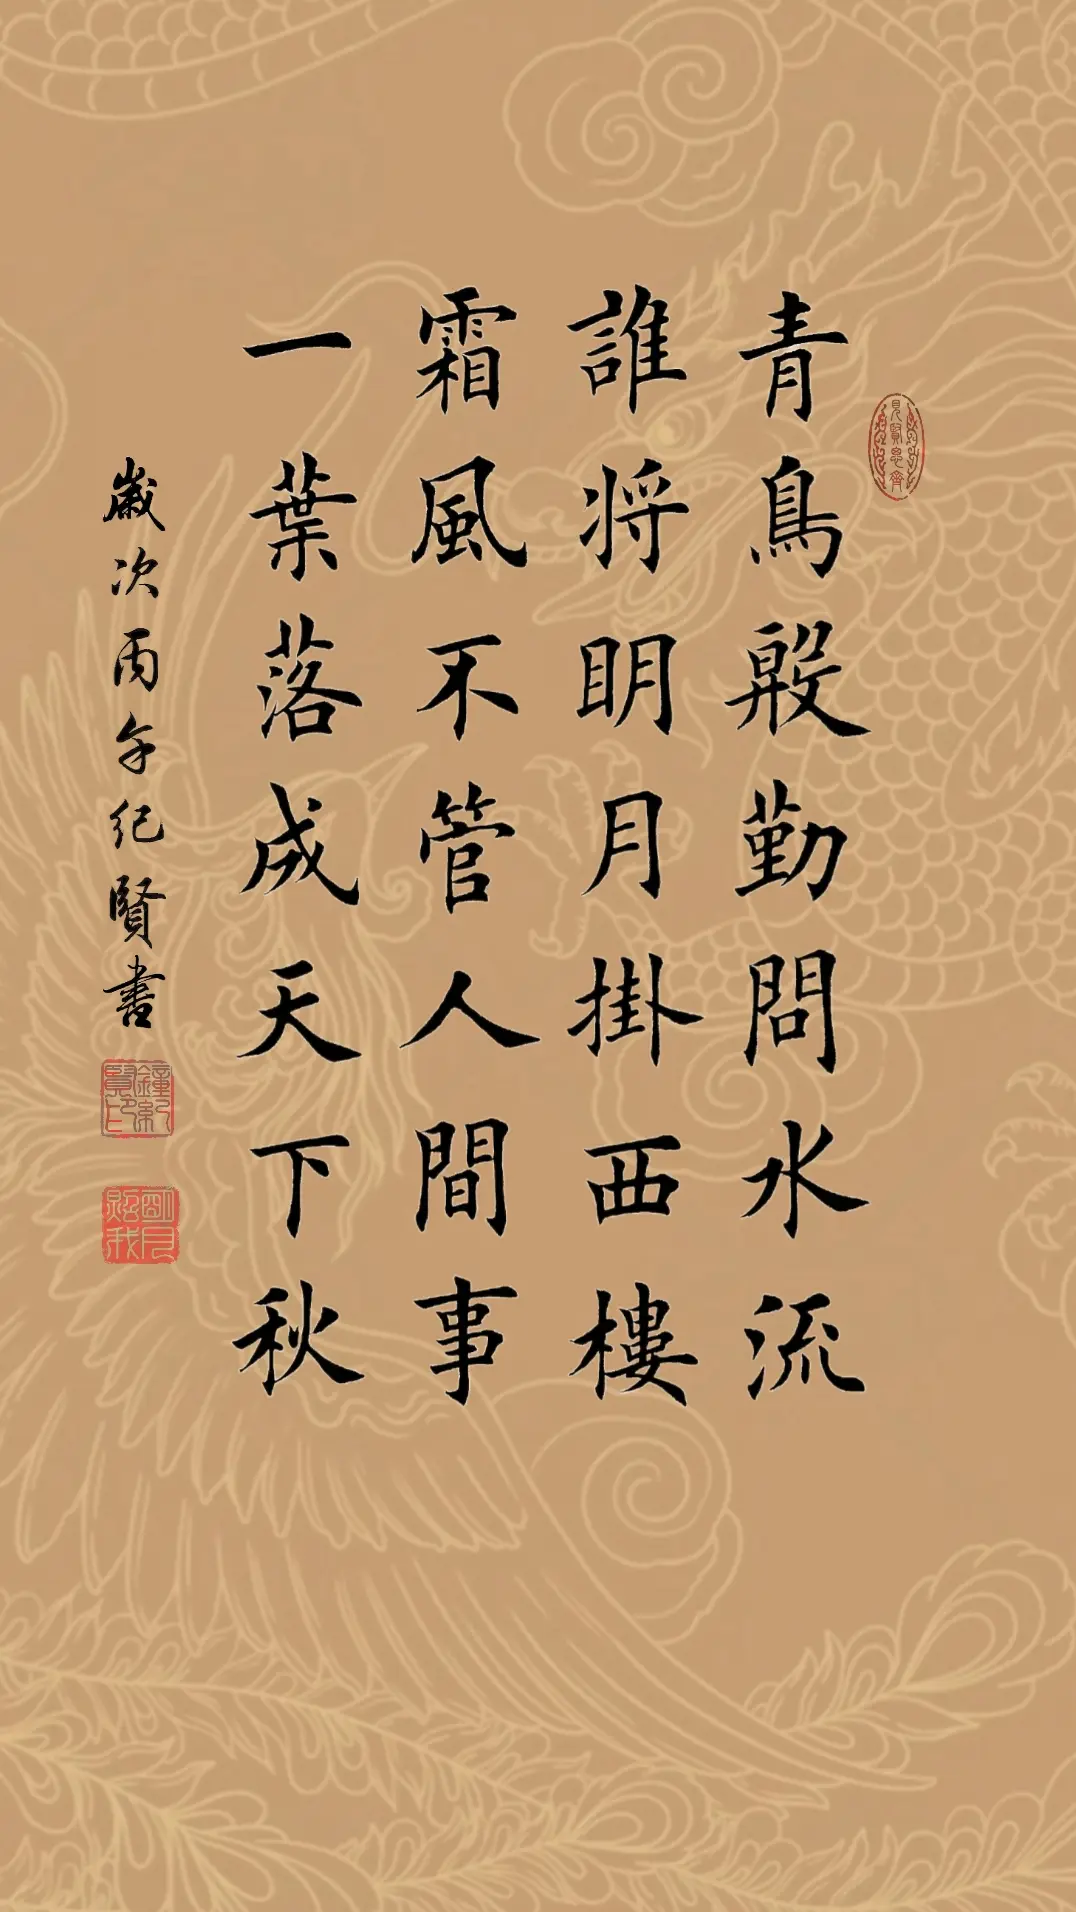 青鳥殷勤問水流
誰将明月掛西樓
霜風不管人間事
一葉落成天下秋
歲次丙午纪賢書
見賢思齊
鐘紀賢印